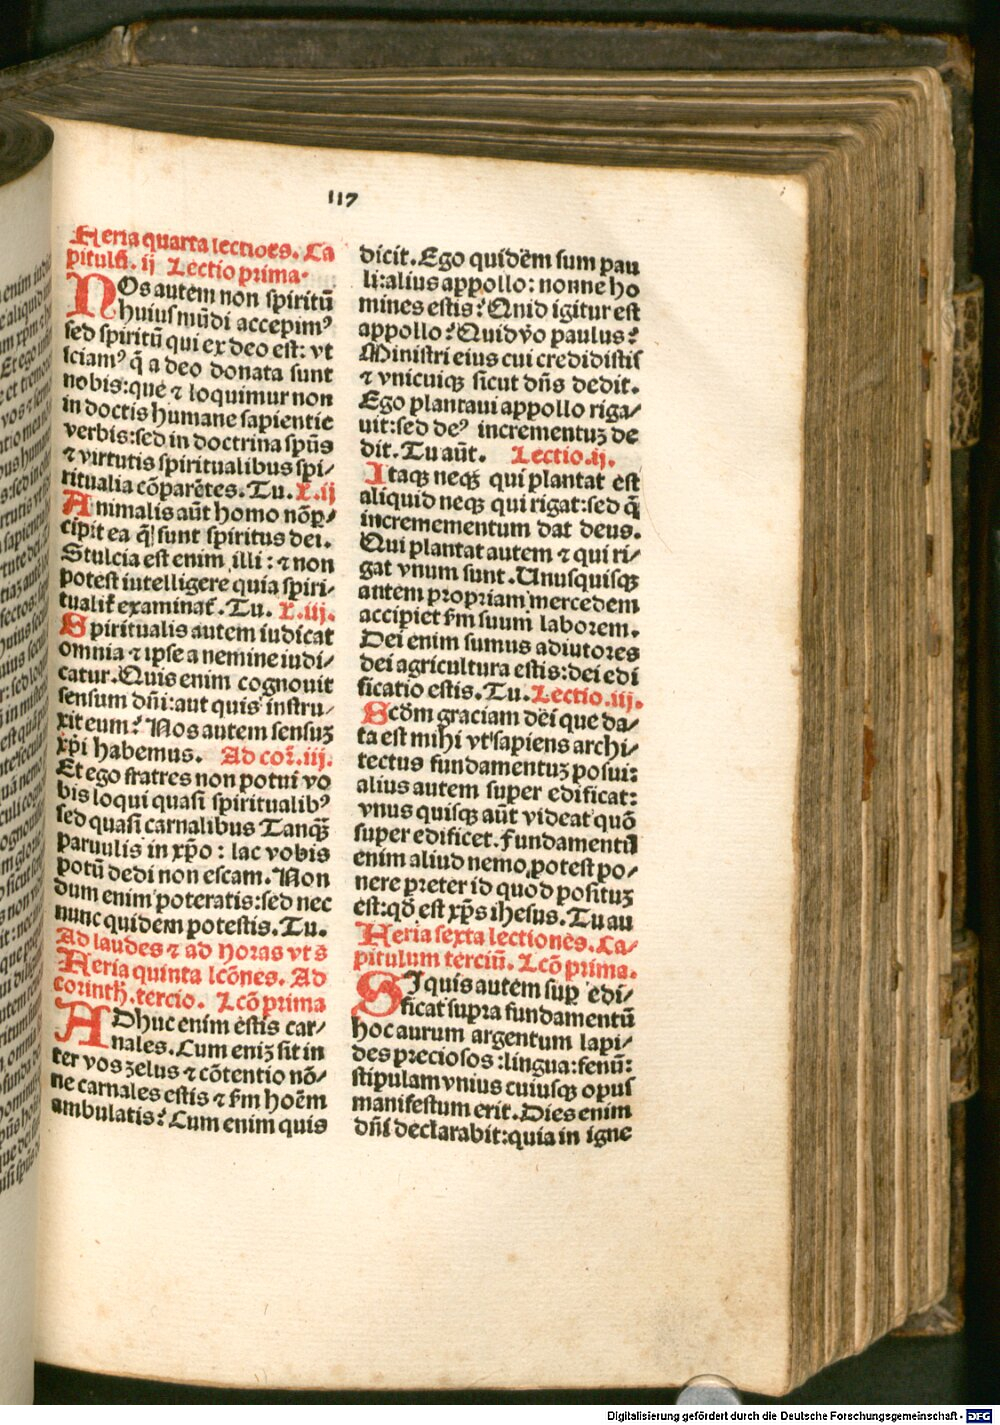 117
Feria quarta lectioēs. Ca
pitulū. ij Lectio prima.
NOs autem non spiritū
huius mūdi accepimꝰ
sed spiritū qui ex deo est: vt
sciamꝰ q̄ a deo donata sunt
nobis: que ⁊ loquimur non
in doctis humane sapientie
verbis: sed in doctrina spūs
⁊ virtutis spiritualibus spi⸗
ritualia cōparētes. Tu. L. ij
Animalis aūt homo nōp̱⸗
cipit ea q̄ sunt spiritus dei.
Stulcia est enim illi: ⁊ non
potest intelligere quia spiri⸗
tualiť examinať. Tu. L. iij.
Spiritualis autem iudicat
omnia ⁊ ipse a nemine iudi⸗
catur. Quis enim cognouit
sensum dn̄i: aut quis instru⸗
xit eum? Nos autem sensuꝫ
xp̄i habemus. Ad coꝝ. iij.
Et ego fratres non potui vo
bis loqui quasi spiritualibꝰ
sed quasi carnalibus Tanqȝ̄
paruulis in xp̄o: lac vobis
potū dedi non escam. Non
dum enim poteratis: sed nec
nunc quidem potestis. Tu.
Ad laudes ⁊ ad horas vt s
Feria quinta lcōnes. Ad
corinth. tercio. Lcō prima
ADhuc enim estis car⸗
nales. Cum eniꝫ sit in
ter vos zelus ⁊ cōtentio nō⸗
ne carnales estis ⁊ fm hoēm
ambulatis? Cum enim quis
dicit. Ego quidēm sum pau
li: alius appollo: nonne ho
mines estis? Quid igitur est
appollo? Quid v̊o paulus?
Ministri eius cui credidistis
⁊ vnicuiqꝫ sicut dn̄s dedit.
Ego plantaui appollo riga⸗
uit: sed deꝰ incrementuꝫ de
dit. Tu aūt. Lectio. ij.
Itaqꝫ neqꝫ qui plantat est
aliquid neqꝫ qui rigat: sed q̄
incremementum dat deus.
Qui plantat autem ⁊ qui ri⸗
gat vnum sunt. Unusquisqꝫ
autem propriam mercedem
accipiet fm suum laborem.
Dei enim sumus adiutores
dei agricultura estis: dei edi
ficatio estis. Tu. Lectio. iij.
Scd̄m graciam dei que da⸗
ta est mihi vt sapiens archi⸗
tectus fundamentuꝫ posui:
alius autem super edificat:
vnus quisqꝫ aūt videat quō
super edificet. Fundamentū
enim aliud nemo potest po⸗
nere preter id quod posituꝫ
est: qd̄ est xp̄s ihesus. Tu au
Feria sexta lectiones. Ca⸗
pitulum terciū. Lcō prima.
SI quis autem sup̱ edi⸗
ficat supra fundamentū
hoc aurum argentum lapi⸗
des preciosos: lingua: fenū:
stipulam vnius cuiusqꝫ opus
manifestum erit. Dies enim
dn̄i declarabit: quia in igne
Digitalisierung gefördert durch die Deutsche Forschungsgemeinschaft - DFG